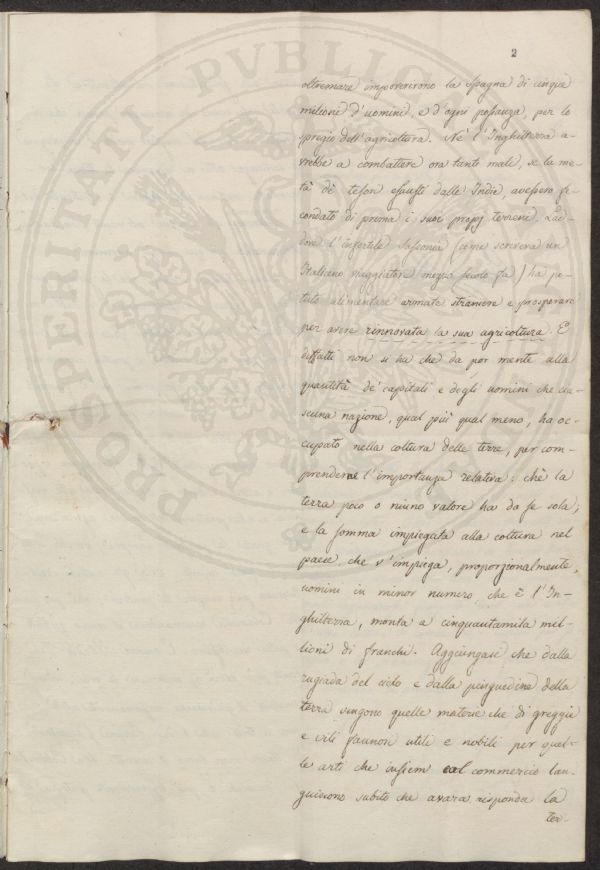 2
oltremare impoverirono la Spagna di cinque
milioni d'uomini, e d'ogni possanza, per lo
spregio dell'agricoltura. Nè l'Inghilterra a-
vrebbe a combattere ora tanto male, se la me-
tà de' tesori esausti dalle Indie, avessero fe-
condato di prima i suoi propj terreni. Lad-
dove l'infertile Sassonia (come scriveva un
Italiano viaggiatore mezzo secolo fa) ha po-
tuto alimentare armate straniere e prosperare
per avere rinnovata la sua agricoltura. E
diffatti non si ha che da por mente alla
quantità de' capitali e degli uomini che cia-
scuna nazione, qual più qual meno, ha oc-
cupato nella coltura delle terre, per com-
prenderne l'importanza relativa: chè la
terra poco o niuno valore ha da se sola;
e la somma impiegata alla coltura nel
paese che v'impiega, proporzionalmente,
uomini in minor numero che è l'In-
ghilterra, monta a cinquantamila mil-
lioni di franchi. Aggiungasi che dalla
rugiada del cielo e dalla pinguedine della
terra vengono quelle materie che di greggie
e vili fannosi utili e nobili per quel-
le arti che insiem col commercio lan-
guiscono subito che avara risponda la
ter-
PROSPERITATI PVBLICAE